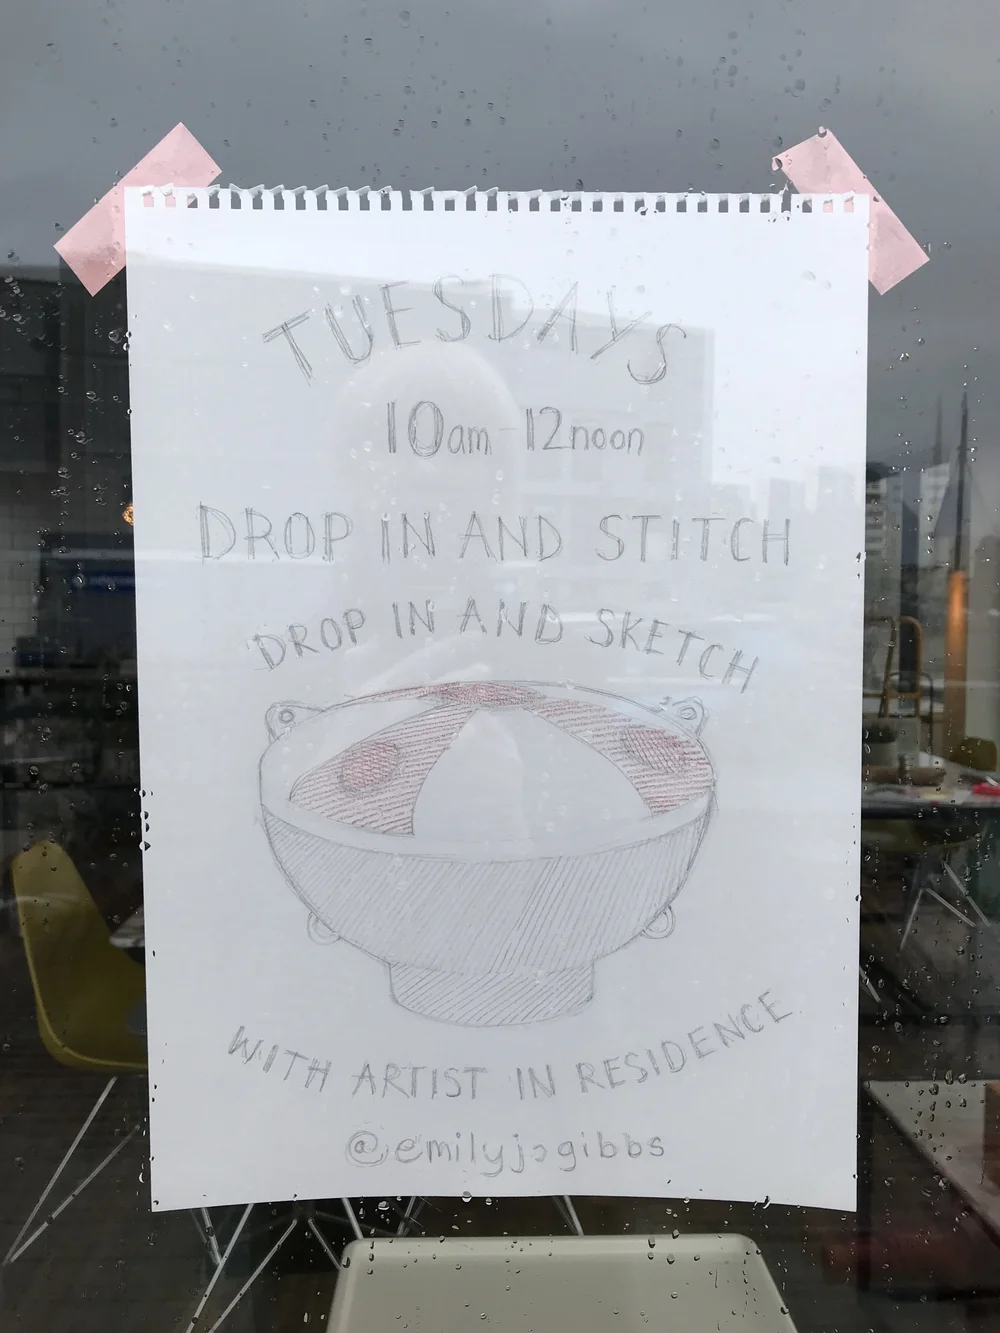 TUESDAYS
10am - 12noon
DROP IN AND STITCH
DROP IN AND SKETCH
WITH ARTIST IN RESIDENCE
@emilyjogibbs